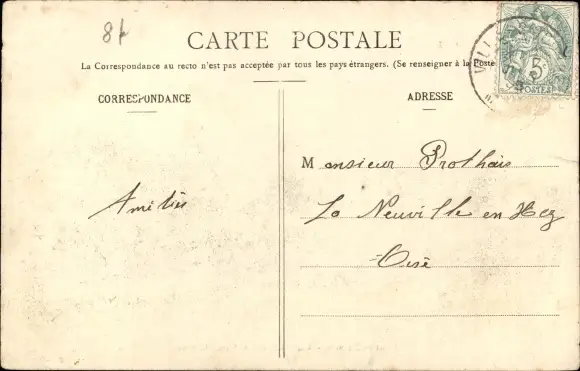 8f
CARTE POSTALE
La Correspondance au recto n'est pas acceptée par tous les pays étrangers. (Se renseigner à la Poste
CORRESPONDANCE
ADRESSE
Amitiés
Monsieur Prothais
La Neuville en Hez
Oise
5
POSTES